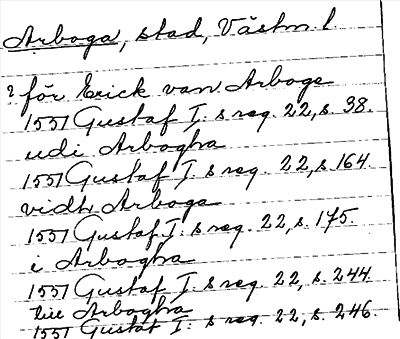 Arboga, stad, Västm. l
? för Erick van Arboge
1551 Gustaf I: s reg. 22, s. 38.
udi Arbogha
1551 Gustaf I: s reg. 22, s. 164.
vidh Arboga
1551 Gustaf I: s reg. 22, s. 175.
i Arbogha
1551 Gustaf I: s reg. 22, s. 244.
till Arbogha
1551 Gustaf I: s reg. 22, s. 246.